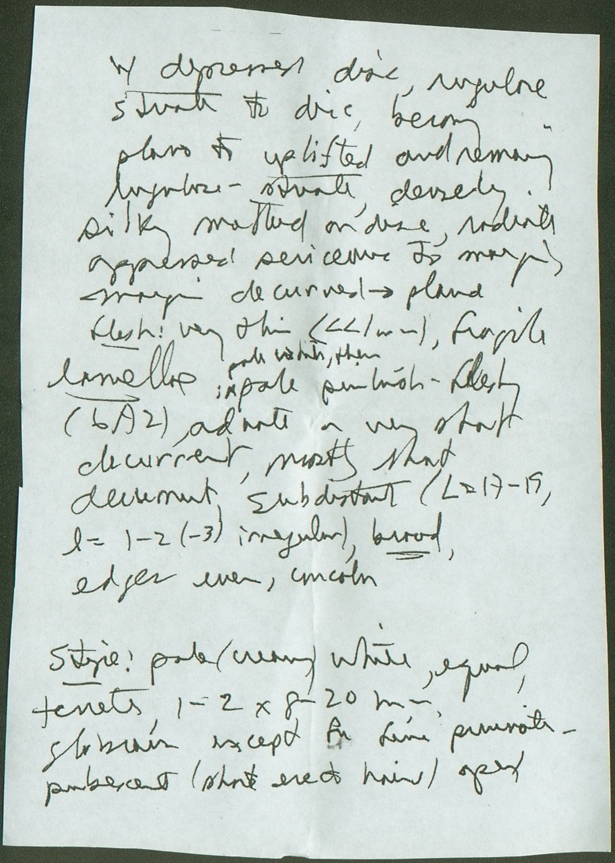 w depressed disc, rugulose
striate to disc, becoming
plano to uplifted and remaining
rugulose-striate, densely
silky matted on disc, radiate
appressed sericeous to margin,
margin decurved → plane
Flesh: very thin (<<1mm), fragile
pale whitish, then
Lamellae pale pinkish-flesh
(6A2), adnate or very short
decurrent, mostly short
decurrent, subdistant (L=17-19,
l= 1-2 (-3) irregular), broad,
edges even, concolor
Stipe: pale (creamy) white, equal,
terete, 1-2 x 8-20 mm,
glabrous except for fine pruinate-
pubescent (short erect hairs) apex